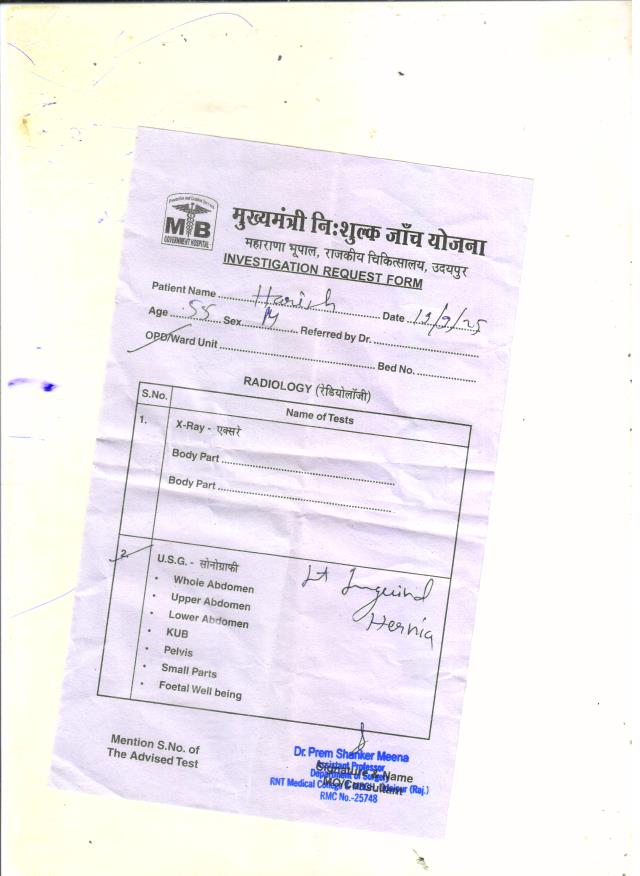 Preventive and Curative Services
MB
GOVERNMENT HOSPITAL
मुख्यमंत्री नि:शुल्क जाँच योजना
महाराणा भूपाल, राजकीय चिकित्सालय, उदयपुर
INVESTIGATION REQUEST FORM
Patient Name Harish Date
Age 55 Sex M Referred by Dr.
OPD/Ward Unit Bed No.
RADIOLOGY (रेडियोलॉजी)
S.No. Name of Tests
1. X-Ray - एक्सरे
Body Part
Body Part
2. U.S.G. - सोनोग्राफी
• Whole Abdomen
• Upper Abdomen
• Lower Abdomen
• KUB
• Pelvis
• Small Parts
• Foetal Well being
Lt Inguinal
Hernia
Mention S.No. of
The Advised Test
Dr. Prem Shanker Meena
Assistant Professor
Department of Surgery
RNT Medical College & MBGH, Udaipur (Raj.)
RMC No.-25748
Signature & Name
MO/Consultant